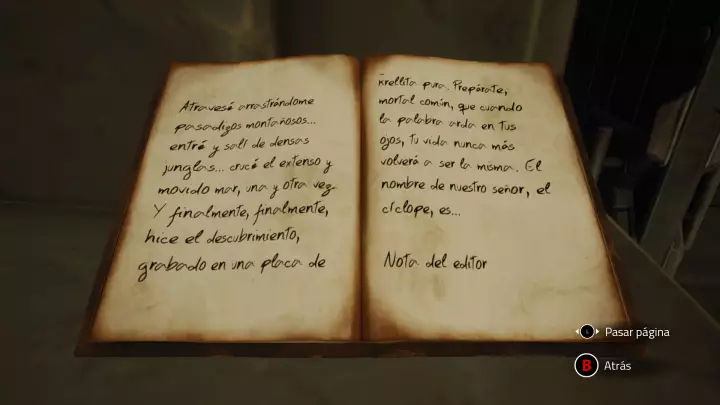 Atravesé arrastrándome
pasadizos montañosos...
entré y salí de densas
junglas... crucé el extenso y
movido mar, una y otra vez.
Y finalmente, finalmente,
hice el descubrimiento,
grabado en una placa de
krellita pura. Prepárate,
mortal común, que cuando
la palabra arda en tus
ojos, tu vida nunca más
volverá a ser la misma. El
nombre de nuestro señor, el
cíclope, es...
Nota del editor
Pasar página
B Atrás